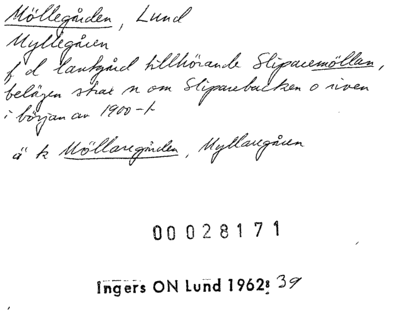 Möllegården, Lund
Myllegåren
f d lantgård tillhörande Sliparemöllan,
belägen strax n om Sliparebacken o riven
i början av 1900-t
ä k Möllaregården, Myllaregåren
00028171
Ingers ON Lund 1962: 39